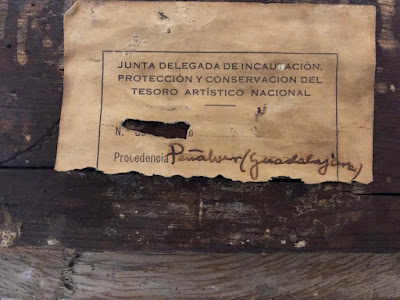 JUNTA DELEGADA DE INCAUTACIÓN,
PROTECCIÓN Y CONSERVACION DEL
TESORO ARTÍSTICO NACIONAL
N.
Procedencia Peñalver (Guadalajara)